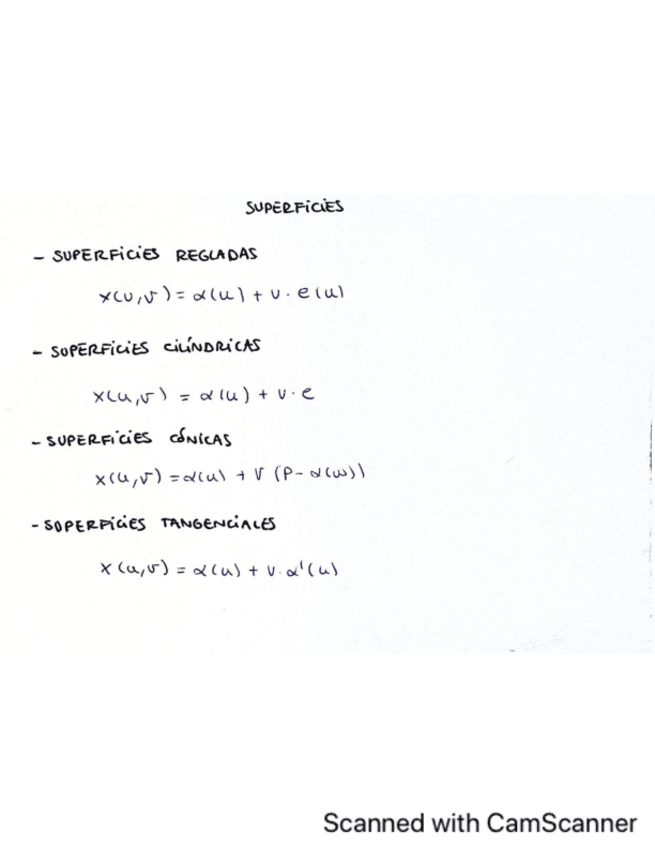 SUPERFICIES
- SUPERFICIES REGLADAS
x(u,v) = α(u) + v · e(u)
- SUPERFICIES CILÍNDRICAS
x(u,v) = α(u) + v · e
- SUPERFICIES CÓNICAS
x(u,v) = α(u) + v (P - α(u))
- SUPERFICIES TANGENCIALES
x(u,v) = α(u) + v · α'(u)
Scanned with CamScanner